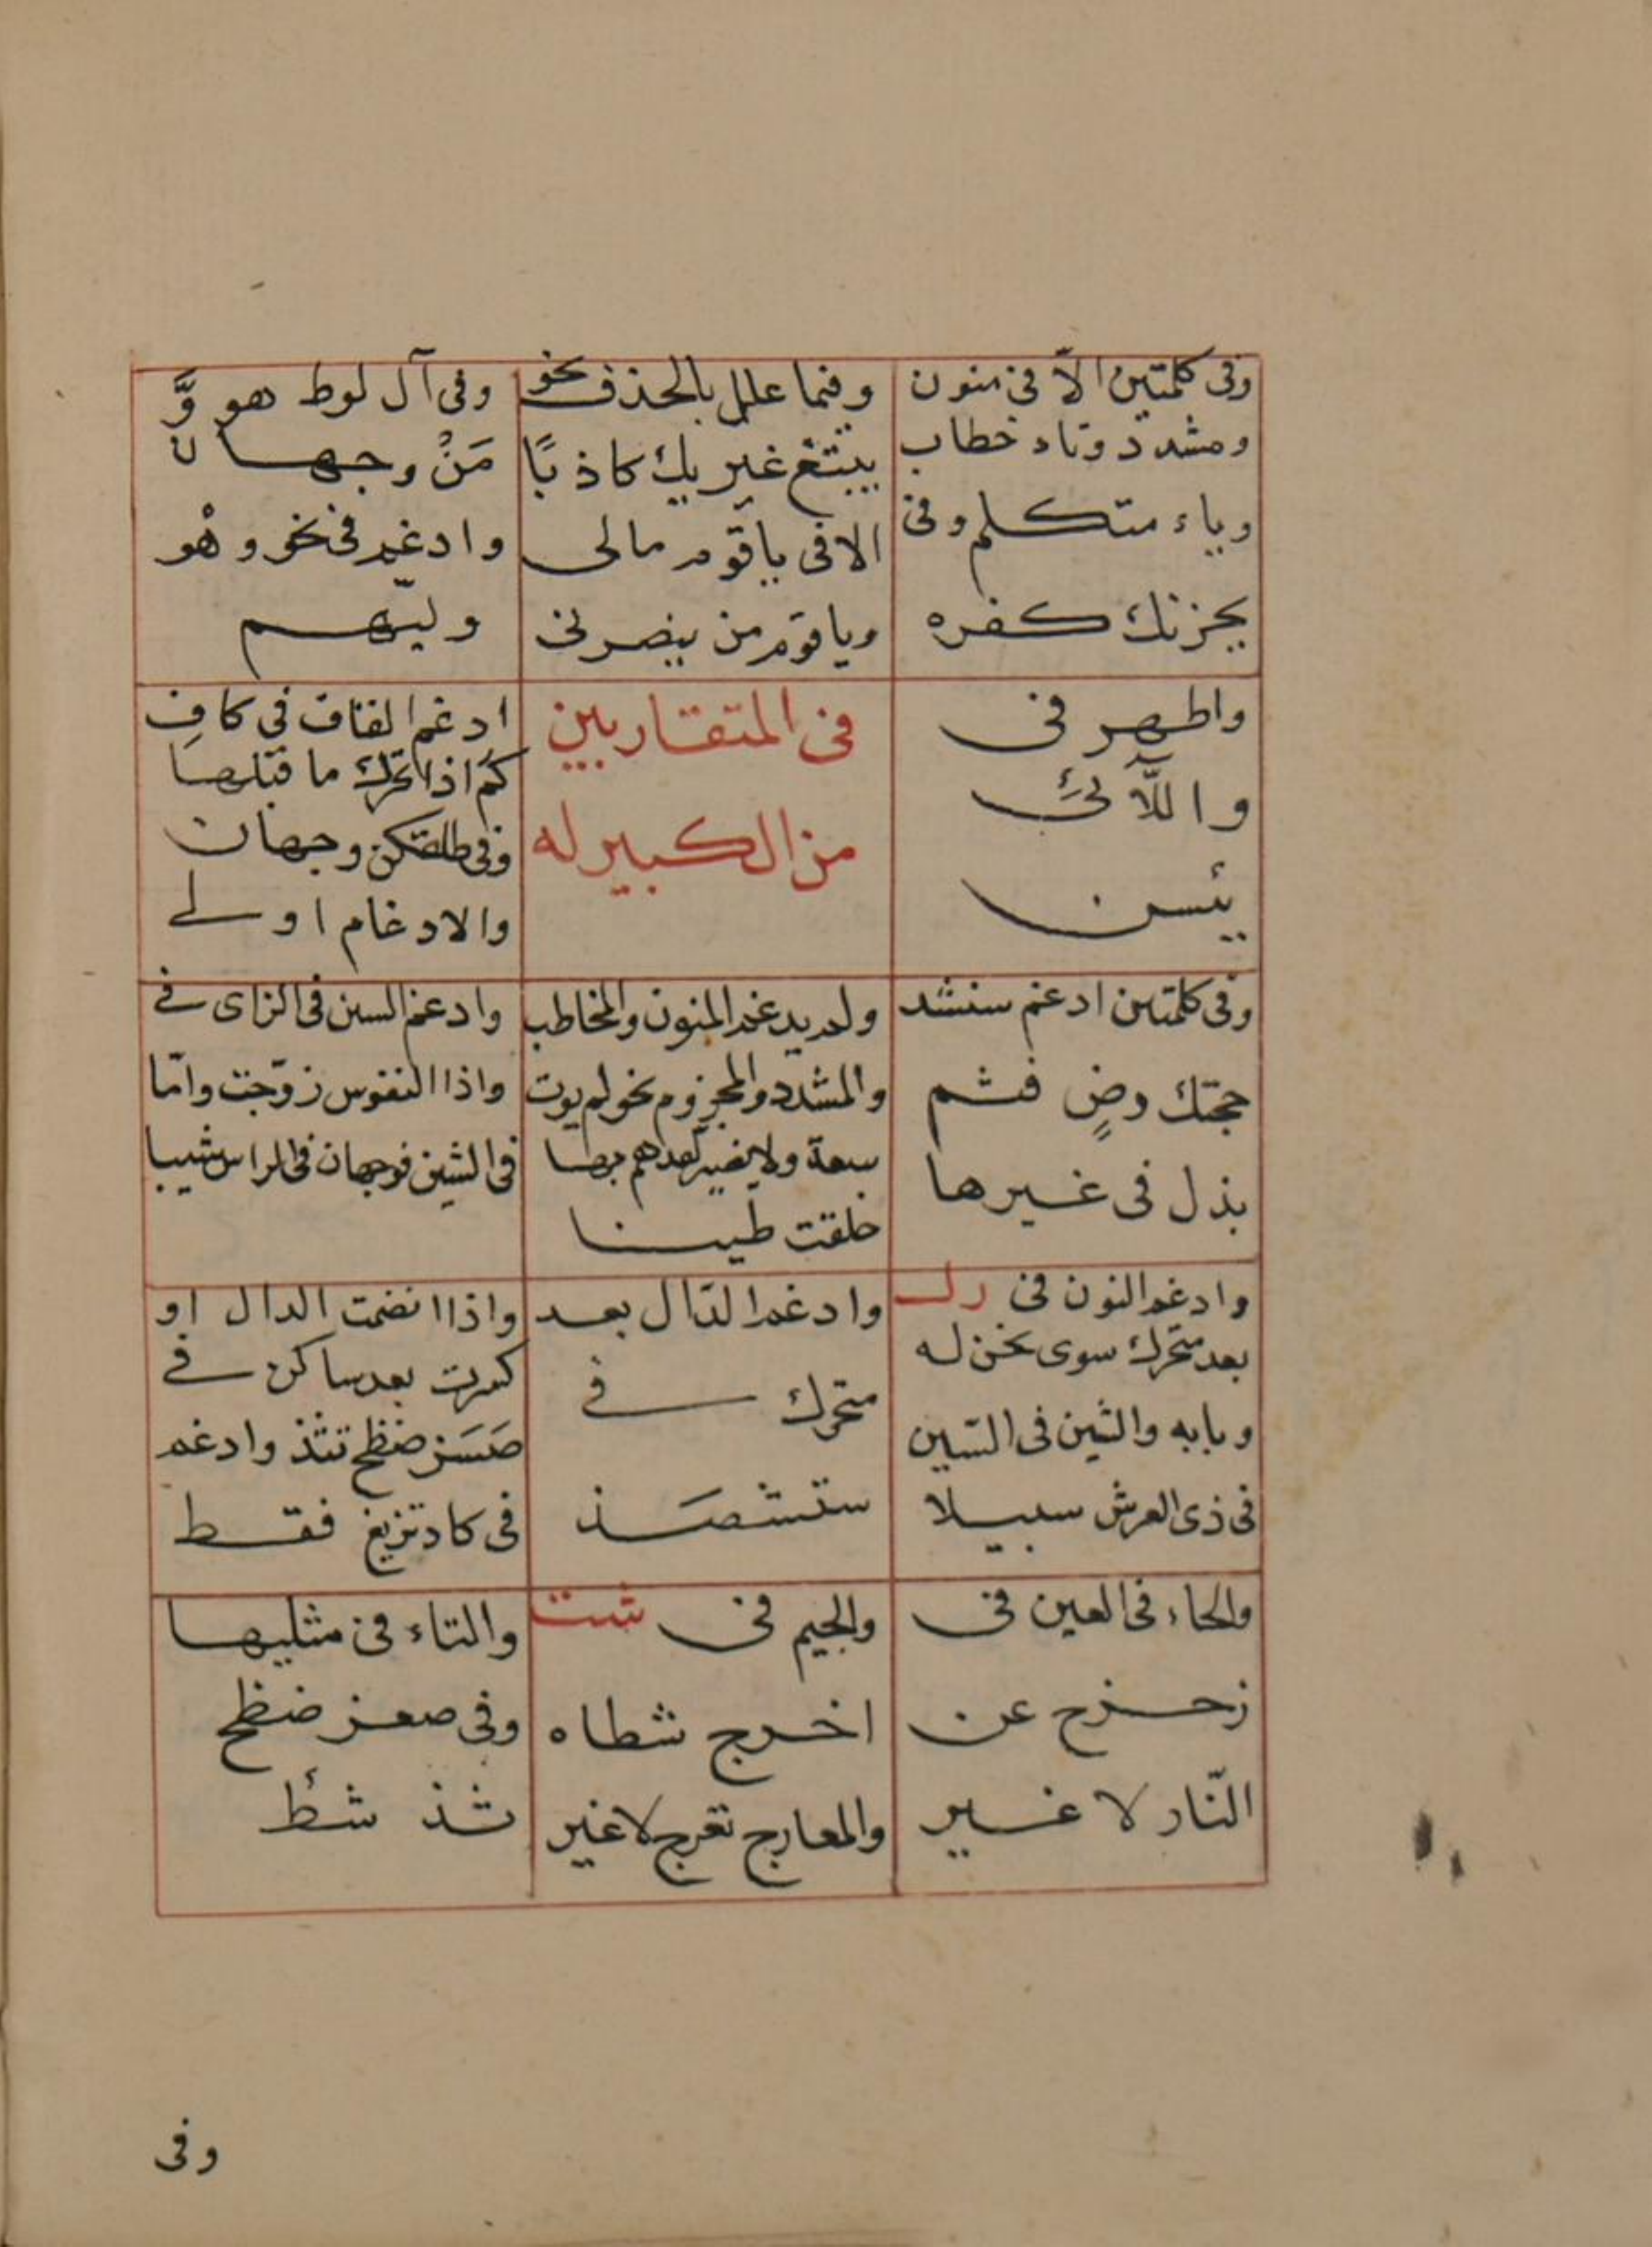 وفى كلمتين الّا فى منون
ومشدد وتاء خطاب
وياء متكلم وفى
يحزنك كفره
وفيما علل بالحذف نحو
يبتغ غير يك كاذبًا
الا فى ياقوم مالى
وياقوم من ينصرنى
وفى آل لوط هو وَّ
مَنْ وجهان
وادغم فى نحو وهْو
وليّهم
واظهر فى
واللّآئى
يئسن
فى المتقاربين
من الكبير له
ادغم القاف فى كاف
كم اذا تحرك ما قبلها
وفى طلقكن وجهان
والادغام اولى
وفى كلمتين ادغم سنشد
حجتك وضٍ فثم
بذل فى غيرها
ولم يدغم المنون والمخاطب
والمشدد والمجزوم نحو لم يوت
سعة ولا نصير لقد هم بها
خلقت طينا
وادغم السين فى الزاى فى
واذا النفوس زوّجت وامّا
فى الشين فوجهان فى الراس شيبا
وادغم النون فى رل
بعد متحرك سوى نحن له
وبابه والشين فى السّين
فى ذى العرش سبيلا
وادغم الدّال بعد
متحرك فى
ستشصَذ
واذا انضمت الدال او
كسرت بعد ساكن فى
صَسَز ضظج تثذ وادغم
فى كاد تزيغ فقط
والحاء فى العين فى
زحزح عن
النّار لا غير
والجيم فى شت
اخرج شطاه
والمعارج تعرج لا غير
والتاء فى مثليها
وفى صعز ضظج
ثذ شئط
وفى